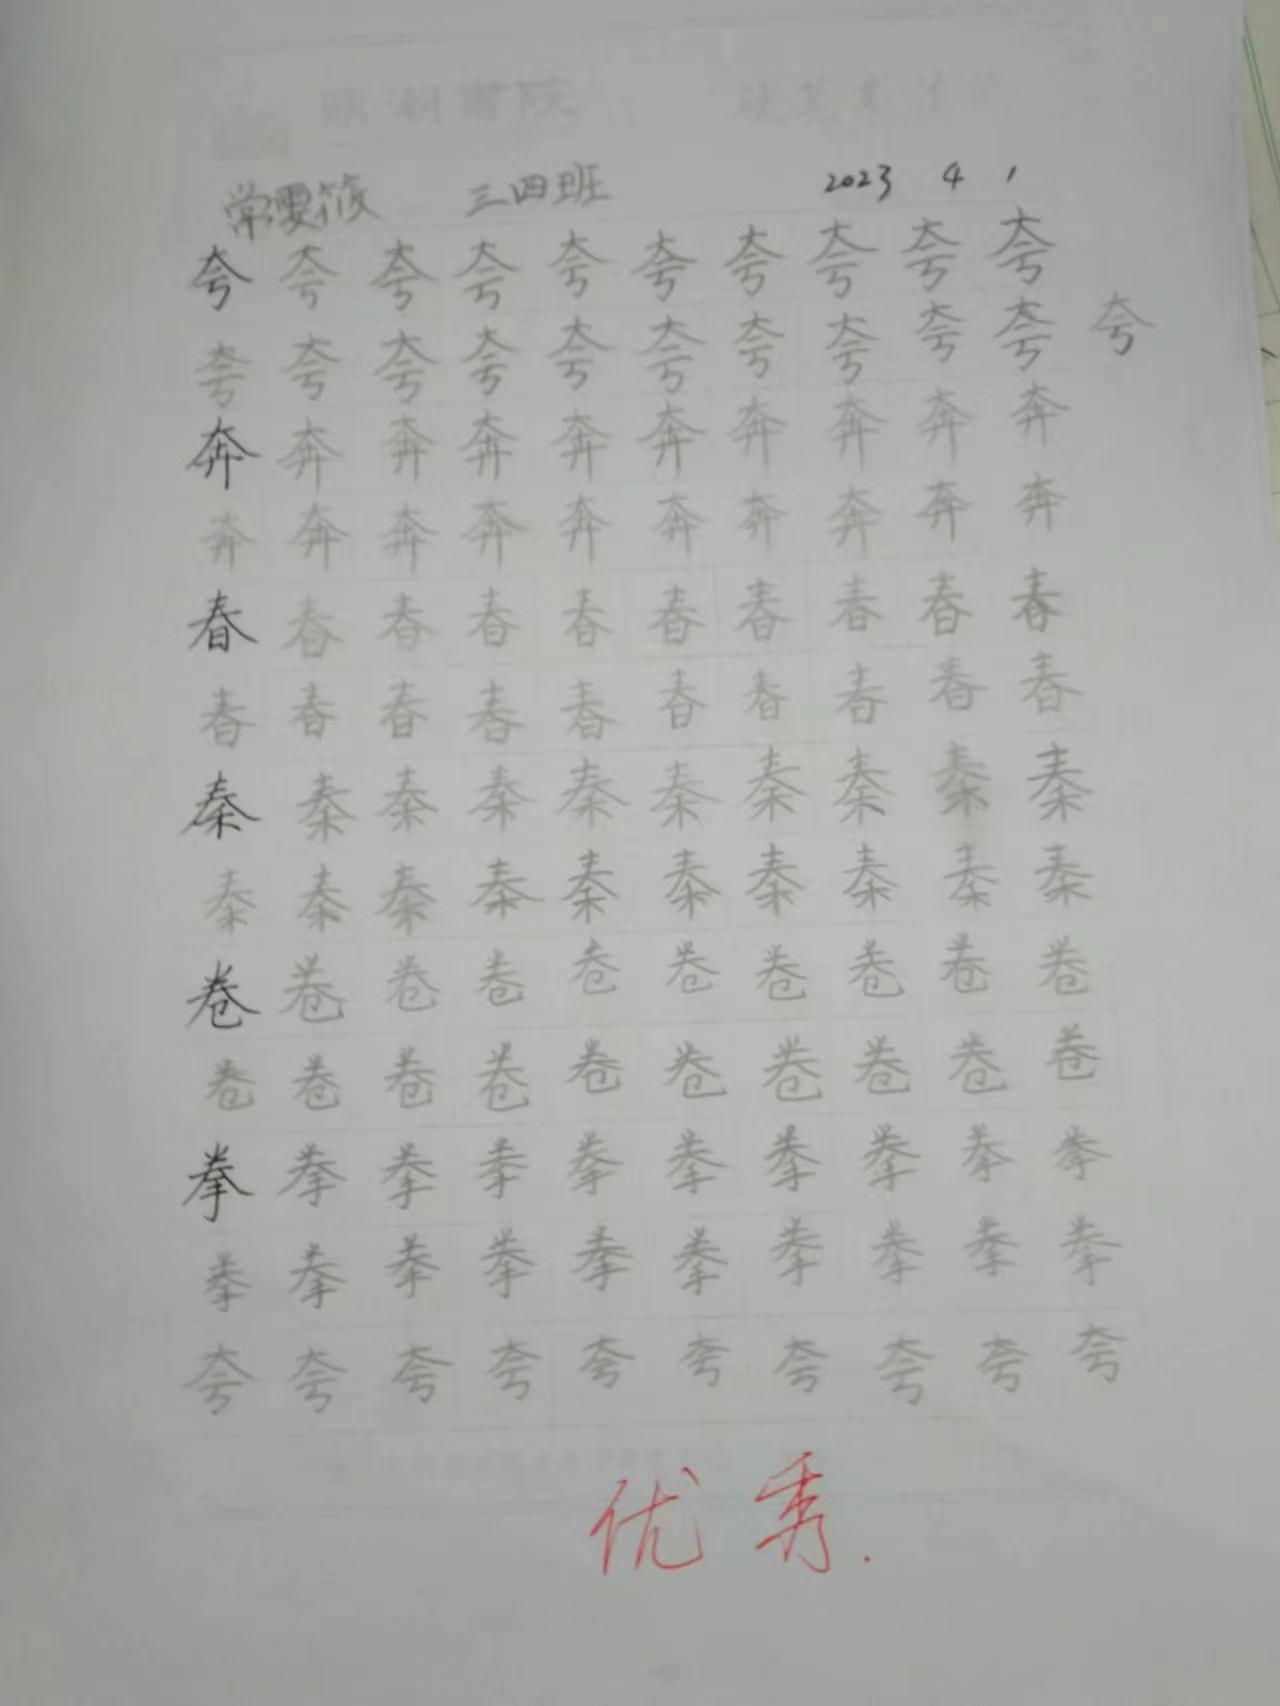 鼎湖書院 硬笔书法
常雯筱 三四班 2023 4 1
夸夸夸夸夸夸夸夸夸夸
夸夸夸夸夸夸夸夸夸夸夸
奔奔奔奔奔奔奔奔奔奔
奔奔奔奔奔奔奔奔奔奔
春春春春春春春春春春
春春春春春春春春春春
秦秦秦秦秦秦秦秦秦秦
秦秦秦秦秦秦秦秦秦秦
卷卷卷卷卷卷卷卷卷卷
卷卷卷卷卷卷卷卷卷卷
拳拳拳拳拳拳拳拳拳拳
拳拳拳拳拳拳拳拳拳拳
夸夸夸夸夸夸夸夸夸夸
优秀.